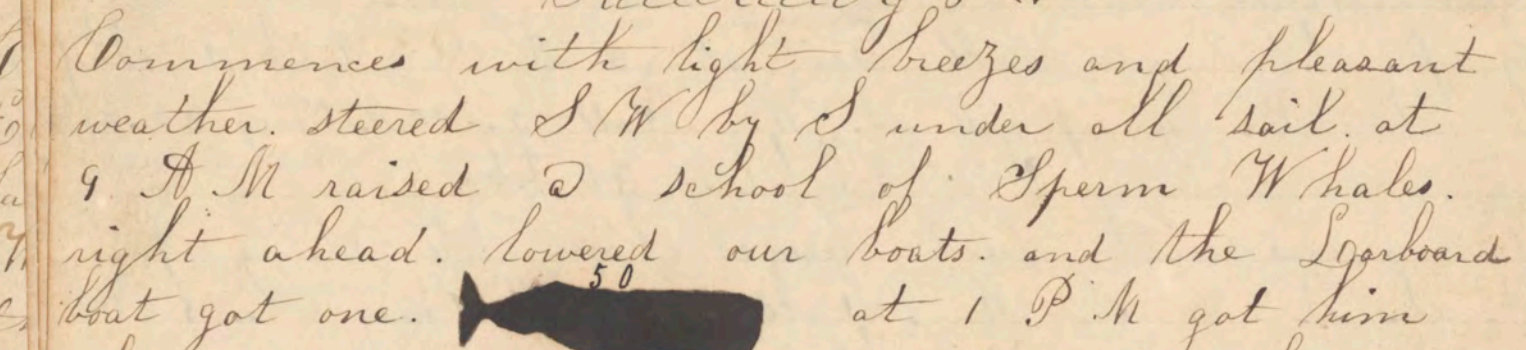 Commences with light breezes and pleasant
weather. steered S W by S under all sail. at
9. A M raised a school of Sperm Whales.
right ahead. lowered our boats. and the Larboard
50
boat got one. at 1 P M got him